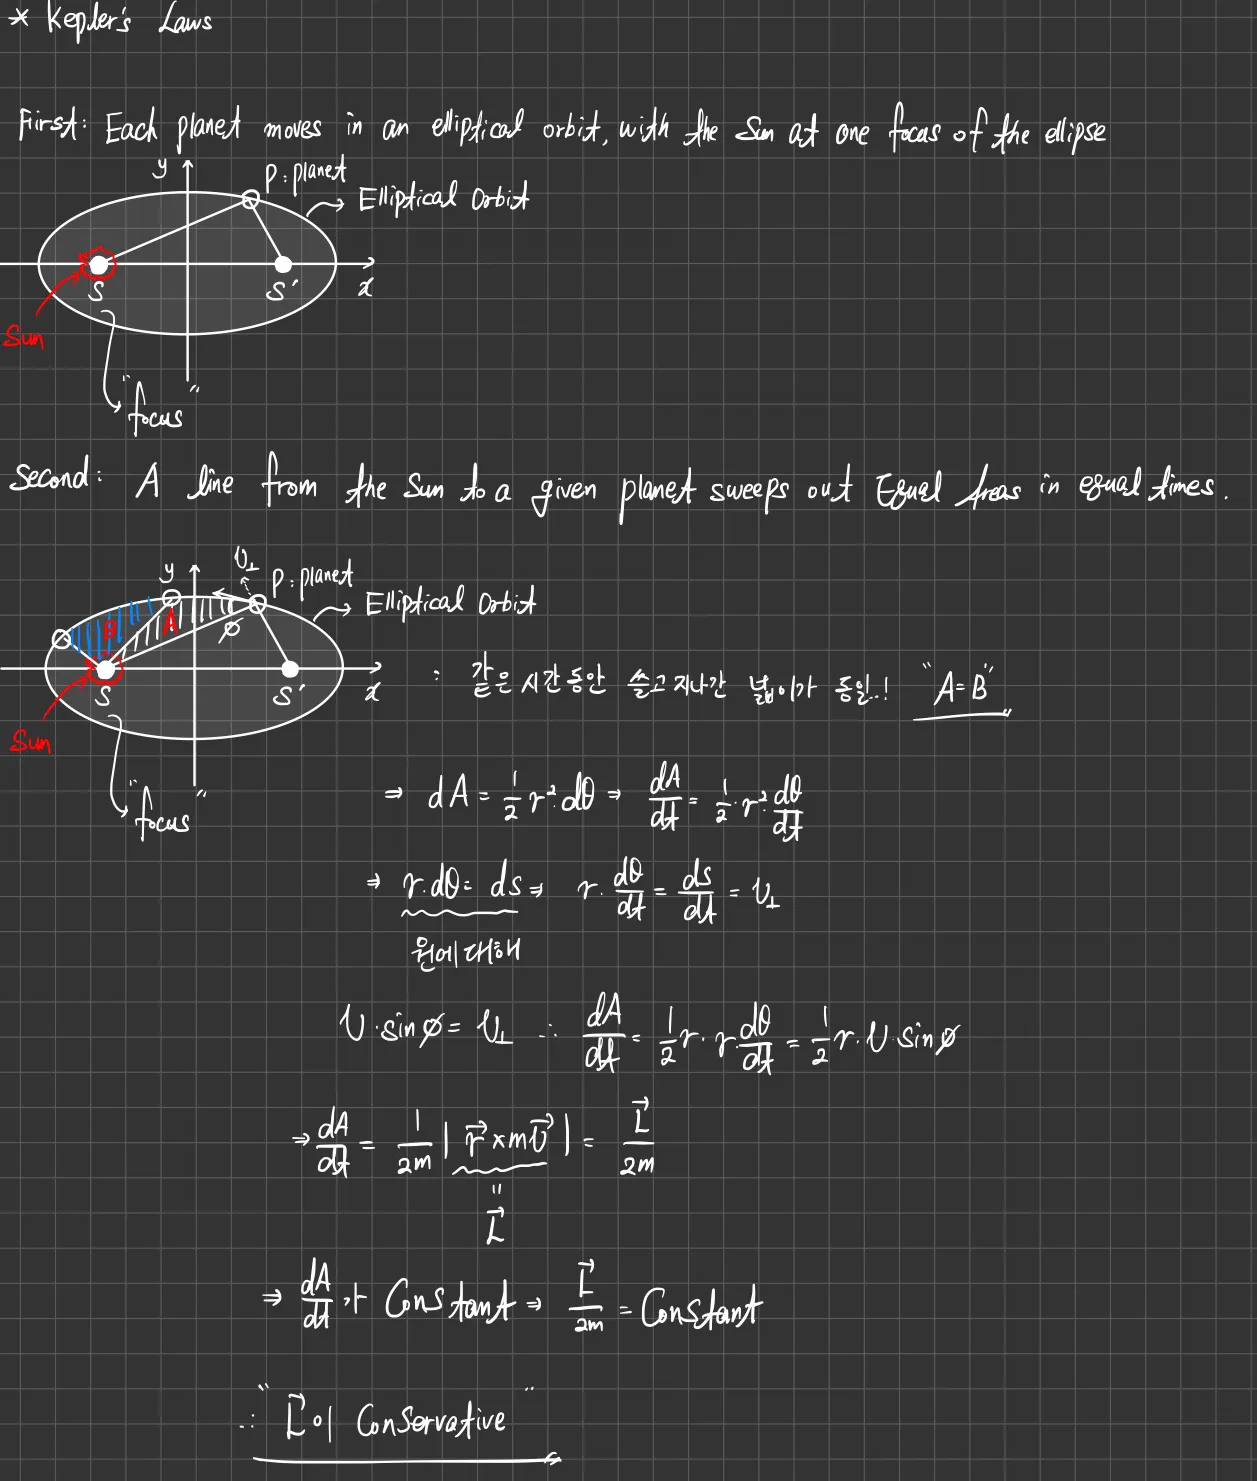 * Kepler's Laws
First: Each planet moves in an elliptical orbit, with the Sun at one focus of the ellipse
y
P: planet
Elliptical Orbit
S
S'
x
Sun
"focus"
Second: A line from the Sun to a given planet sweeps out Equal Areas in equal times.
υ⊥
y
P: planet
Elliptical Orbit
B
A
ø
S
S'
x
Sun
"focus"
: 같은 시간동안 쓸고 지나간 넓이가 동일..! "A=B"
⇒ dA = 1/2 r²·dθ ⇒ dA/dt = 1/2·r²·dθ/dt
⇒ r·dθ = ds ⇒ r·dθ/dt = ds/dt = υ⊥
원에 대해
υ·sinø = υ⊥ ∴ dA/dt = 1/2 r·r·dθ/dt = 1/2 r·υ·sinø
⇒ dA/dt = 1/2m | r⃗ × mυ⃗ | = L⃗/2m
"
L⃗
⇒ dA/dt 가 Constant ⇒ L⃗/2m = Constant
∴ "L⃗이 Conservative"